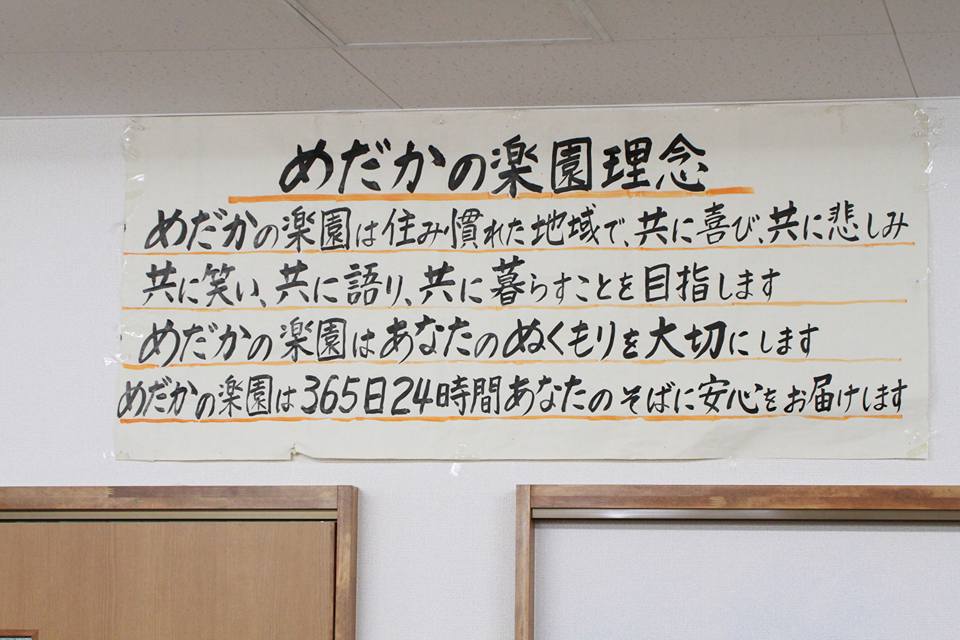 めだかの楽園理念
めだかの楽園は住み慣れた地域で、共に喜び、共に悲しみ
共に笑い、共に語り、共に暮らすことを目指します
めだかの楽園はあなたのぬくもりを大切にします
めだかの楽園は365日24時間あなたのそばに安心をお届けします